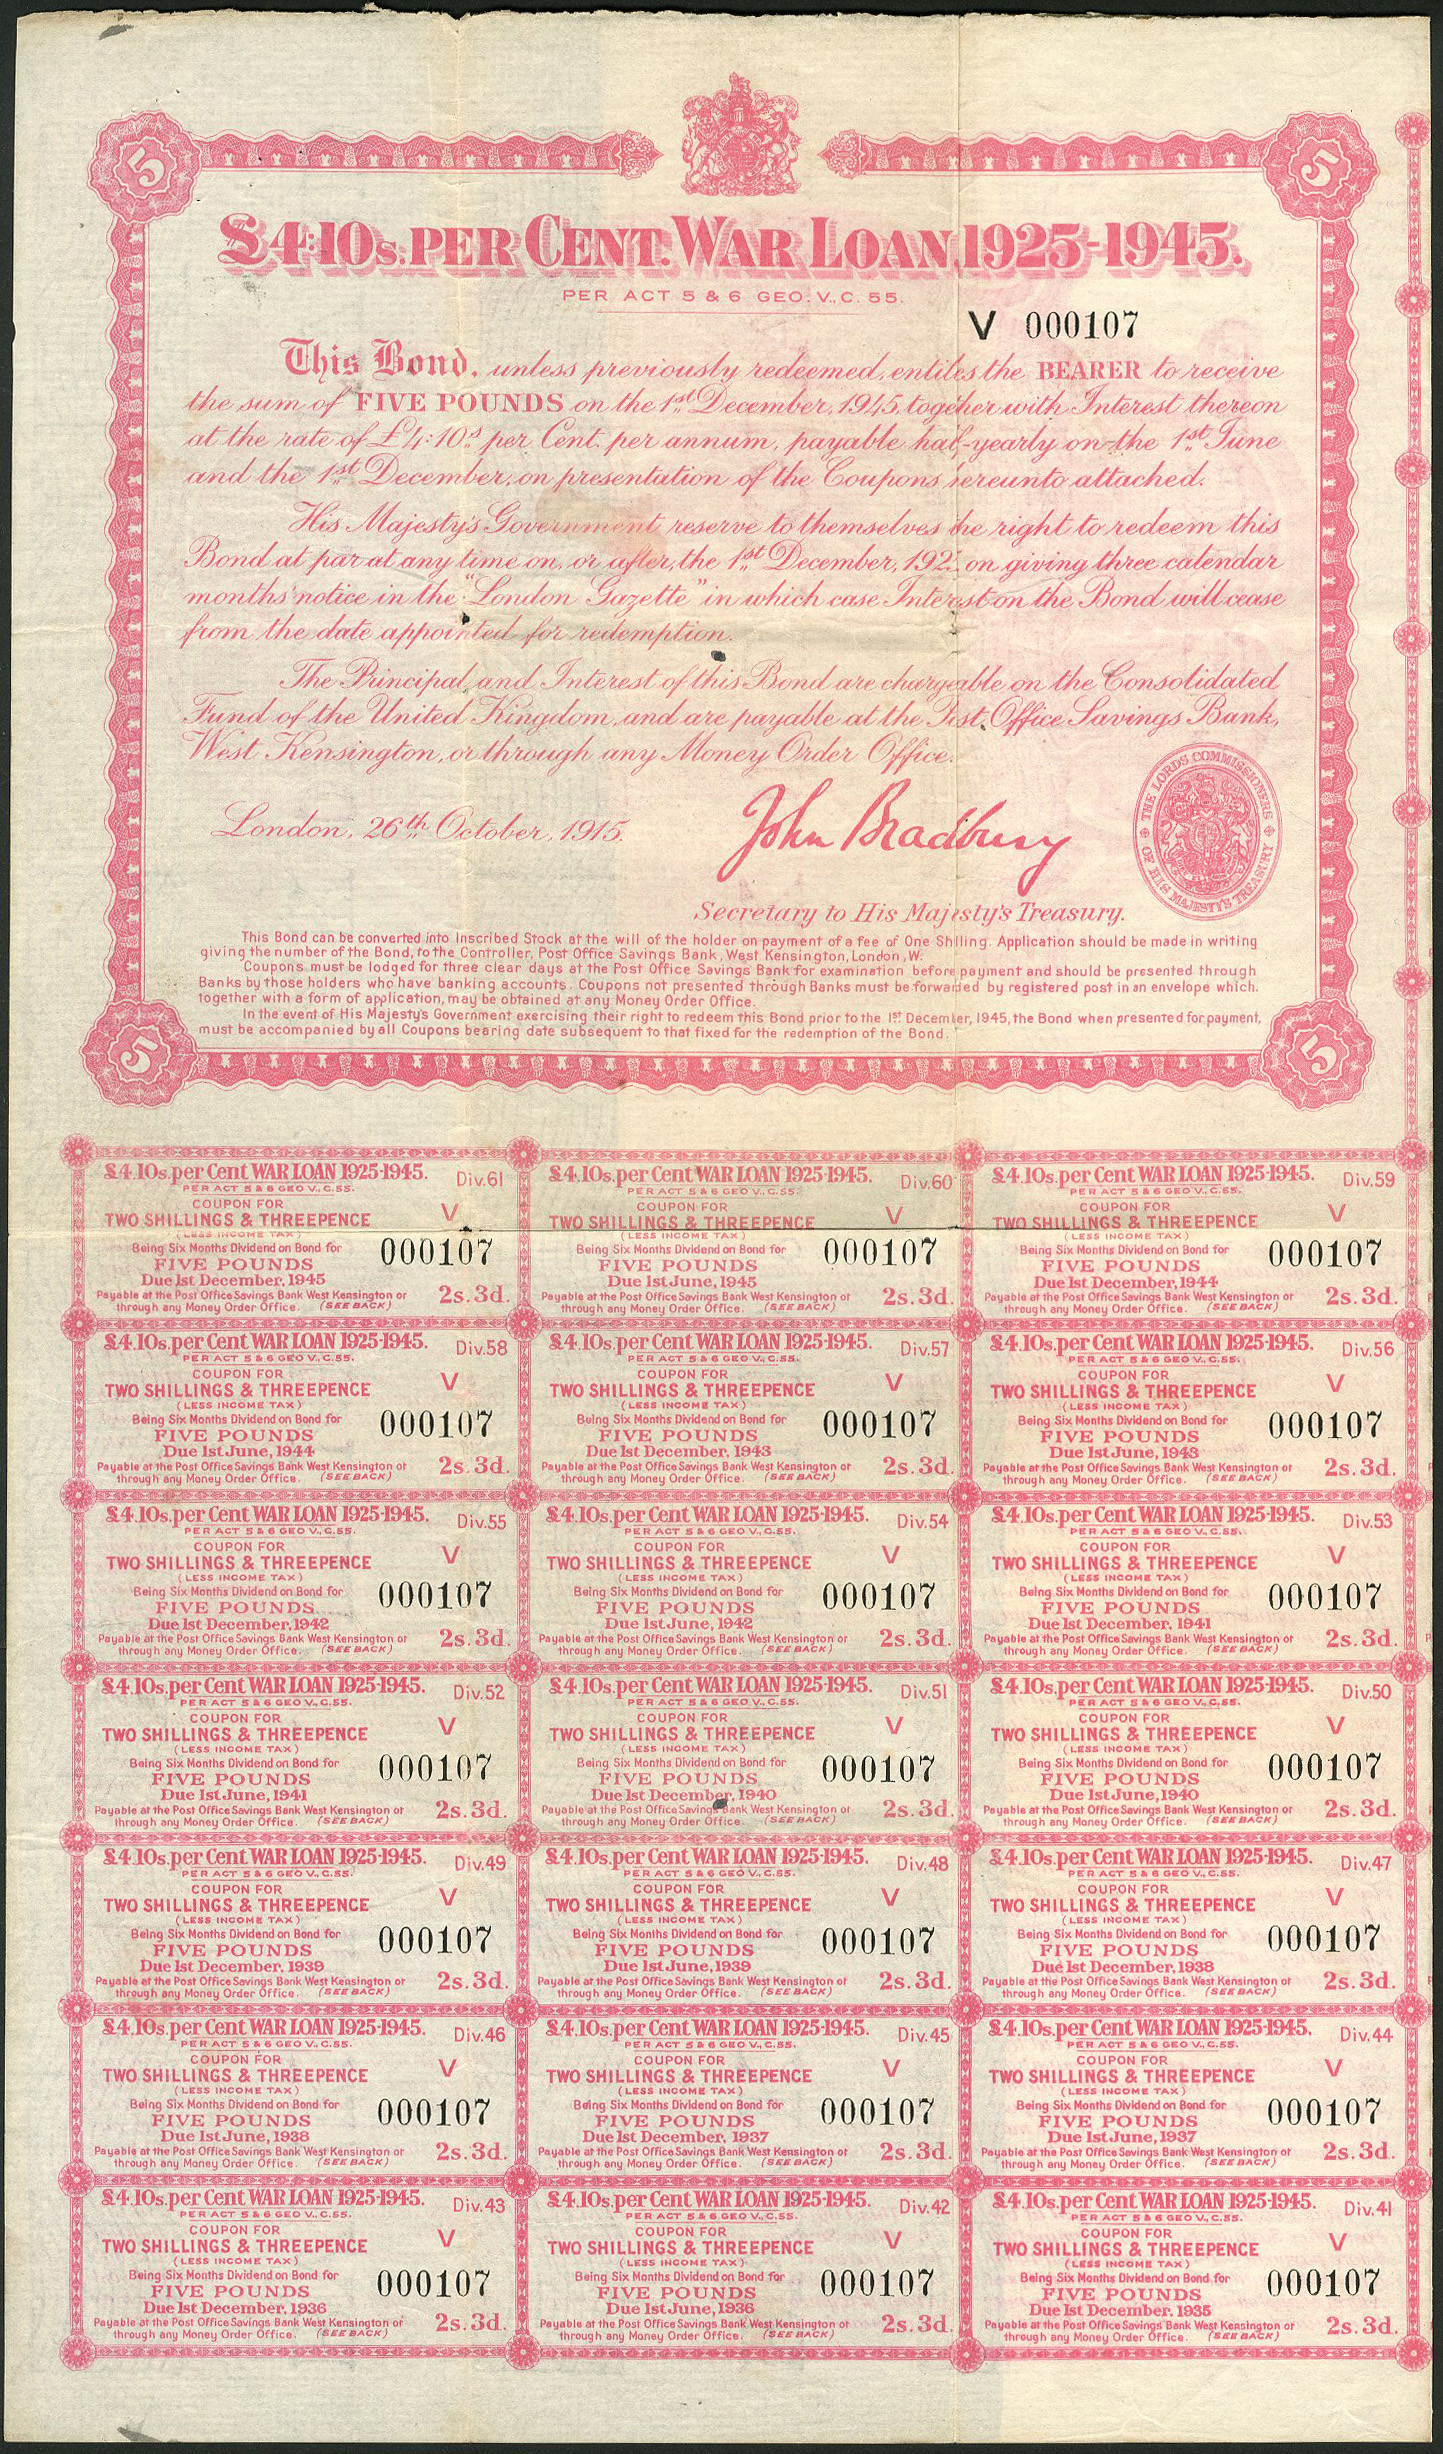 5 5
£4:10s. PER CENT. WAR LOAN, 1925-1945.
PER ACT 5 & 6 GEO. V., C. 55.
V 000107
This Bond, unless previously redeemed, entitles the BEARER to receive
the sum of FIVE POUNDS on the 1st December, 1945, together with Interest thereon
at the rate of £4:10s per Cent. per annum, payable half-yearly on the 1st June
and the 1st December, on presentation of the Coupons hereunto attached.
His Majesty's Government reserve to themselves the right to redeem this
Bond at par at any time on, or after, the 1st December, 1925, on giving three calendar
months' notice in the "London Gazette" in which case Interest on the Bond will cease
from the date appointed for redemption.
The Principal and Interest of this Bond are chargeable on the Consolidated
Fund of the United Kingdom, and are payable at the Post Office Savings Bank,
West Kensington, or through any Money Order Office.
London, 26th October, 1915.
John Bradbury
THE LORDS COMMISSIONERS OF HIS MAJESTY'S TREASURY
Secretary to His Majesty's Treasury.
This Bond can be converted into Inscribed Stock at the will of the holder on payment of a fee of One Shilling. Application should be made in writing
giving the number of the Bond, to the Controller, Post Office Savings Bank, West Kensington, London, W.
Coupons must be lodged for three clear days at the Post Office Savings Bank for examination before payment and should be presented through
Banks by those holders who have banking accounts. Coupons not presented through Banks must be forwarded by registered post in an envelope which,
together with a form of application, may be obtained at any Money Order Office.
In the event of His Majesty's Government exercising their right to redeem this Bond prior to the 1st December, 1945, the Bond when presented for payment,
must be accompanied by all Coupons bearing date subsequent to that fixed for the redemption of the Bond.
5 5
£4.10s. per Cent WAR LOAN 1925-1945. Div.61
PER ACT 5 & 6 GEO V., C.55.
COUPON FOR
TWO SHILLINGS & THREEPENCE V
(LESS INCOME TAX)
Being Six Months Dividend on Bond for 000107
FIVE POUNDS
Due 1st December, 1945
Payable at the Post Office Savings Bank West Kensington or 2s. 3d.
through any Money Order Office. (SEE BACK)
£4.10s. per Cent WAR LOAN 1925-1945. Div.60
PER ACT 5 & 6 GEO V., C.55.
COUPON FOR
TWO SHILLINGS & THREEPENCE V
(LESS INCOME TAX)
Being Six Months Dividend on Bond for 000107
FIVE POUNDS
Due 1st June, 1945
Payable at the Post Office Savings Bank West Kensington or 2s. 3d.
through any Money Order Office. (SEE BACK)
£4.10s. per Cent WAR LOAN 1925-1945. Div.59
PER ACT 5 & 6 GEO V., C.55.
COUPON FOR
TWO SHILLINGS & THREEPENCE V
(LESS INCOME TAX)
Being Six Months Dividend on Bond for 000107
FIVE POUNDS
Due 1st December, 1944
Payable at the Post Office Savings Bank West Kensington or 2s. 3d.
through any Money Order Office. (SEE BACK)
£4.10s. per Cent WAR LOAN 1925-1945. Div.58
PER ACT 5 & 6 GEO V., C.55.
COUPON FOR
TWO SHILLINGS & THREEPENCE V
(LESS INCOME TAX)
Being Six Months Dividend on Bond for 000107
FIVE POUNDS
Due 1st June, 1944
Payable at the Post Office Savings Bank West Kensington or 2s. 3d.
through any Money Order Office. (SEE BACK)
£4.10s. per Cent WAR LOAN 1925-1945. Div.57
PER ACT 5 & 6 GEO V., C.55.
COUPON FOR
TWO SHILLINGS & THREEPENCE V
(LESS INCOME TAX)
Being Six Months Dividend on Bond for 000107
FIVE POUNDS
Due 1st December, 1943
Payable at the Post Office Savings Bank West Kensington or 2s. 3d.
through any Money Order Office. (SEE BACK)
£4.10s. per Cent WAR LOAN 1925-1945. Div.56
PER ACT 5 & 6 GEO V., C.55.
COUPON FOR
TWO SHILLINGS & THREEPENCE V
(LESS INCOME TAX)
Being Six Months Dividend on Bond for 000107
FIVE POUNDS
Due 1st June, 1943
Payable at the Post Office Savings Bank West Kensington or 2s. 3d.
through any Money Order Office. (SEE BACK)
£4.10s. per Cent WAR LOAN 1925-1945. Div.55
PER ACT 5 & 6 GEO V., C.55.
COUPON FOR
TWO SHILLINGS & THREEPENCE V
(LESS INCOME TAX)
Being Six Months Dividend on Bond for 000107
FIVE POUNDS
Due 1st December, 1942
Payable at the Post Office Savings Bank West Kensington or 2s. 3d.
through any Money Order Office. (SEE BACK)
£4.10s. per Cent WAR LOAN 1925-1945. Div.54
PER ACT 5 & 6 GEO V., C.55.
COUPON FOR
TWO SHILLINGS & THREEPENCE V
(LESS INCOME TAX)
Being Six Months Dividend on Bond for 000107
FIVE POUNDS
Due 1st June, 1942
Payable at the Post Office Savings Bank West Kensington or 2s. 3d.
through any Money Order Office. (SEE BACK)
£4.10s. per Cent WAR LOAN 1925-1945. Div.53
PER ACT 5 & 6 GEO V., C.55.
COUPON FOR
TWO SHILLINGS & THREEPENCE V
(LESS INCOME TAX)
Being Six Months Dividend on Bond for 000107
FIVE POUNDS
Due 1st December, 1941
Payable at the Post Office Savings Bank West Kensington or 2s. 3d.
through any Money Order Office. (SEE BACK)
£4.10s. per Cent WAR LOAN 1925-1945. Div.52
PER ACT 5 & 6 GEO V., C.55.
COUPON FOR
TWO SHILLINGS & THREEPENCE V
(LESS INCOME TAX)
Being Six Months Dividend on Bond for 000107
FIVE POUNDS
Due 1st June, 1941
Payable at the Post Office Savings Bank West Kensington or 2s. 3d.
through any Money Order Office. (SEE BACK)
£4.10s. per Cent WAR LOAN 1925-1945. Div.51
PER ACT 5 & 6 GEO V., C.55.
COUPON FOR
TWO SHILLINGS & THREEPENCE V
(LESS INCOME TAX)
Being Six Months Dividend on Bond for 000107
FIVE POUNDS
Due 1st December, 1940
Payable at the Post Office Savings Bank West Kensington or 2s. 3d.
through any Money Order Office. (SEE BACK)
£4.10s. per Cent WAR LOAN 1925-1945. Div.50
PER ACT 5 & 6 GEO V., C.55.
COUPON FOR
TWO SHILLINGS & THREEPENCE V
(LESS INCOME TAX)
Being Six Months Dividend on Bond for 000107
FIVE POUNDS
Due 1st June, 1940
Payable at the Post Office Savings Bank West Kensington or 2s. 3d.
through any Money Order Office. (SEE BACK)
£4.10s. per Cent WAR LOAN 1925-1945. Div.49
PER ACT 5 & 6 GEO V., C.55.
COUPON FOR
TWO SHILLINGS & THREEPENCE V
(LESS INCOME TAX)
Being Six Months Dividend on Bond for 000107
FIVE POUNDS
Due 1st December, 1939
Payable at the Post Office Savings Bank West Kensington or 2s. 3d.
through any Money Order Office. (SEE BACK)
£4.10s. per Cent WAR LOAN 1925-1945. Div.48
PER ACT 5 & 6 GEO V., C.55.
COUPON FOR
TWO SHILLINGS & THREEPENCE V
(LESS INCOME TAX)
Being Six Months Dividend on Bond for 000107
FIVE POUNDS
Due 1st June, 1939
Payable at the Post Office Savings Bank West Kensington or 2s. 3d.
through any Money Order Office. (SEE BACK)
£4.10s. per Cent WAR LOAN 1925-1945. Div.47
PER ACT 5 & 6 GEO V., C.55.
COUPON FOR
TWO SHILLINGS & THREEPENCE V
(LESS INCOME TAX)
Being Six Months Dividend on Bond for 000107
FIVE POUNDS
Due 1st December, 1938
Payable at the Post Office Savings Bank West Kensington or 2s. 3d.
through any Money Order Office. (SEE BACK)
£4.10s. per Cent WAR LOAN 1925-1945. Div.46
PER ACT 5 & 6 GEO V., C.55.
COUPON FOR
TWO SHILLINGS & THREEPENCE V
(LESS INCOME TAX)
Being Six Months Dividend on Bond for 000107
FIVE POUNDS
Due 1st June, 1938
Payable at the Post Office Savings Bank West Kensington or 2s. 3d.
through any Money Order Office. (SEE BACK)
£4.10s. per Cent WAR LOAN 1925-1945. Div.45
PER ACT 5 & 6 GEO V., C.55.
COUPON FOR
TWO SHILLINGS & THREEPENCE V
(LESS INCOME TAX)
Being Six Months Dividend on Bond for 000107
FIVE POUNDS
Due 1st December, 1937
Payable at the Post Office Savings Bank West Kensington or 2s. 3d.
through any Money Order Office. (SEE BACK)
£4.10s. per Cent WAR LOAN 1925-1945. Div.44
PER ACT 5 & 6 GEO V., C.55.
COUPON FOR
TWO SHILLINGS & THREEPENCE V
(LESS INCOME TAX)
Being Six Months Dividend on Bond for 000107
FIVE POUNDS
Due 1st June, 1937
Payable at the Post Office Savings Bank West Kensington or 2s. 3d.
through any Money Order Office. (SEE BACK)
£4.10s. per Cent WAR LOAN 1925-1945. Div.43
PER ACT 5 & 6 GEO V., C.55.
COUPON FOR
TWO SHILLINGS & THREEPENCE V
(LESS INCOME TAX)
Being Six Months Dividend on Bond for 000107
FIVE POUNDS
Due 1st December, 1936
Payable at the Post Office Savings Bank West Kensington or 2s. 3d.
through any Money Order Office. (SEE BACK)
£4.10s. per Cent WAR LOAN 1925-1945. Div.42
PER ACT 5 & 6 GEO V., C.55.
COUPON FOR
TWO SHILLINGS & THREEPENCE V
(LESS INCOME TAX)
Being Six Months Dividend on Bond for 000107
FIVE POUNDS
Due 1st June, 1936
Payable at the Post Office Savings Bank West Kensington or 2s. 3d.
through any Money Order Office. (SEE BACK)
£4.10s. per Cent WAR LOAN 1925-1945. Div.41
PER ACT 5 & 6 GEO V., C.55.
COUPON FOR
TWO SHILLINGS & THREEPENCE V
(LESS INCOME TAX)
Being Six Months Dividend on Bond for 000107
FIVE POUNDS
Due 1st December, 1935
Payable at the Post Office Savings Bank West Kensington or 2s. 3d.
through any Money Order Office. (SEE BACK)